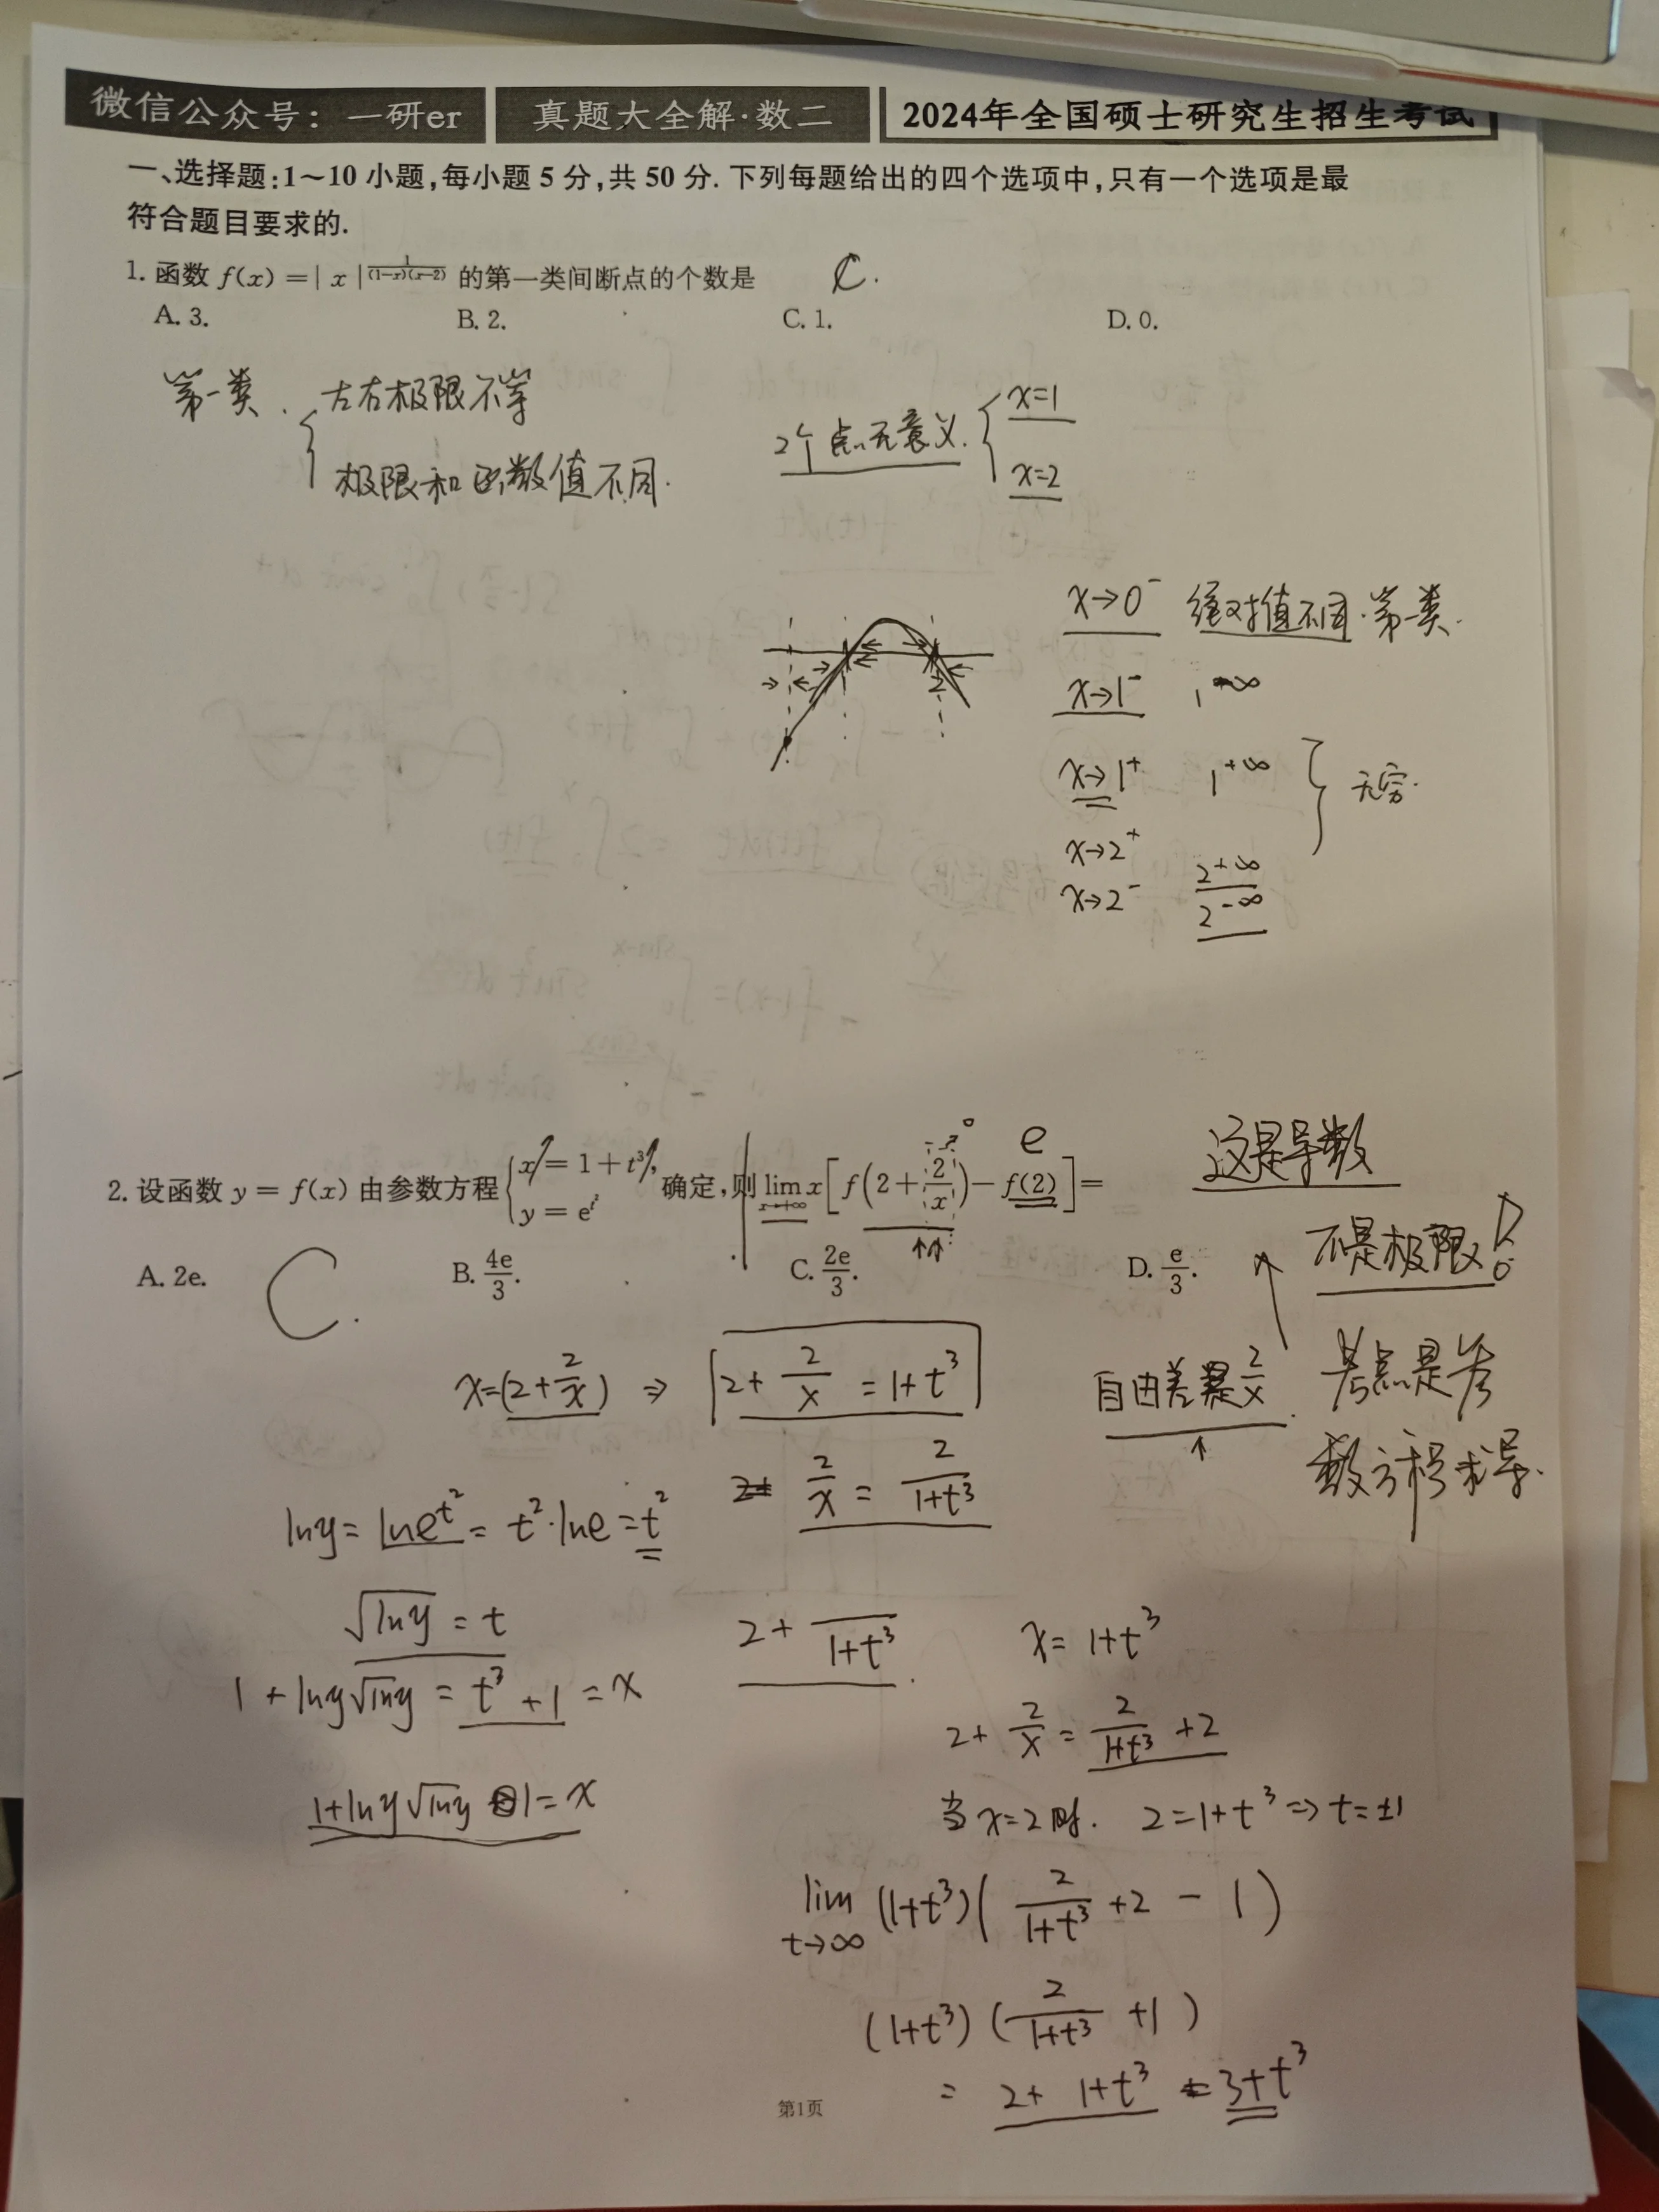 微信公众号：一研er 真题大全解·数二 2024年全国硕士研究生招生考试
一、选择题：1～10 小题，每小题 5 分，共 50 分. 下列每题给出的四个选项中，只有一个选项是最
符合题目要求的.
1. 函数 f(x) = | x |^{\frac{1}{(1-x)(x-2)}} 的第一类间断点的个数是 C.
A. 3. B. 2. C. 1. D. 0.
第一类. 左右极限不等
极限和函数值不同.
2个点无意义. x=1
x=2
x→0⁻ 绝对值不同·第一类.
x→1⁻ 1^{-∞}
x→1⁺ 1^{+∞} 无穷.
x→2⁺ 2^{+∞}
x→2⁻ 2^{-∞}
2
e 这是导数
2. 设函数 y = f(x) 由参数方程 { x = 1 + t³, y = e^{t²} 确定，则 lim_{x→+∞} x[f(2+\frac{2}{x}) − f(2)] =
不是极限!
A. 2e. B. \frac{4e}{3}. C. \frac{2e}{3}. D. \frac{e}{3}.
C.
x=(2+\frac{2}{x}) ⇒ 2+\frac{2}{x} = 1+t³
自由差是\frac{2}{x}.
考点是参
数方程求导.
\frac{2}{x} = \frac{2}{1+t³}
lny= lne^{t²} = t²·lne = t²
\sqrt{lny} = t
1 + lny\sqrt{lny} = t³ +1 = x
1+lny\sqrt{lny} 1= x
2 + \frac{}{1+t³}.
x= 1+t³
2+ \frac{2}{x} = \frac{2}{1+t³} +2
当x=2时. 2=1+t³ ⇒ t=±1
lim_{t→∞} (1+t³)( \frac{2}{1+t³} +2 − 1 )
(1+t³) ( \frac{2}{1+t³} +1 )
= 2+ 1+t³ = 3+t³
第1页